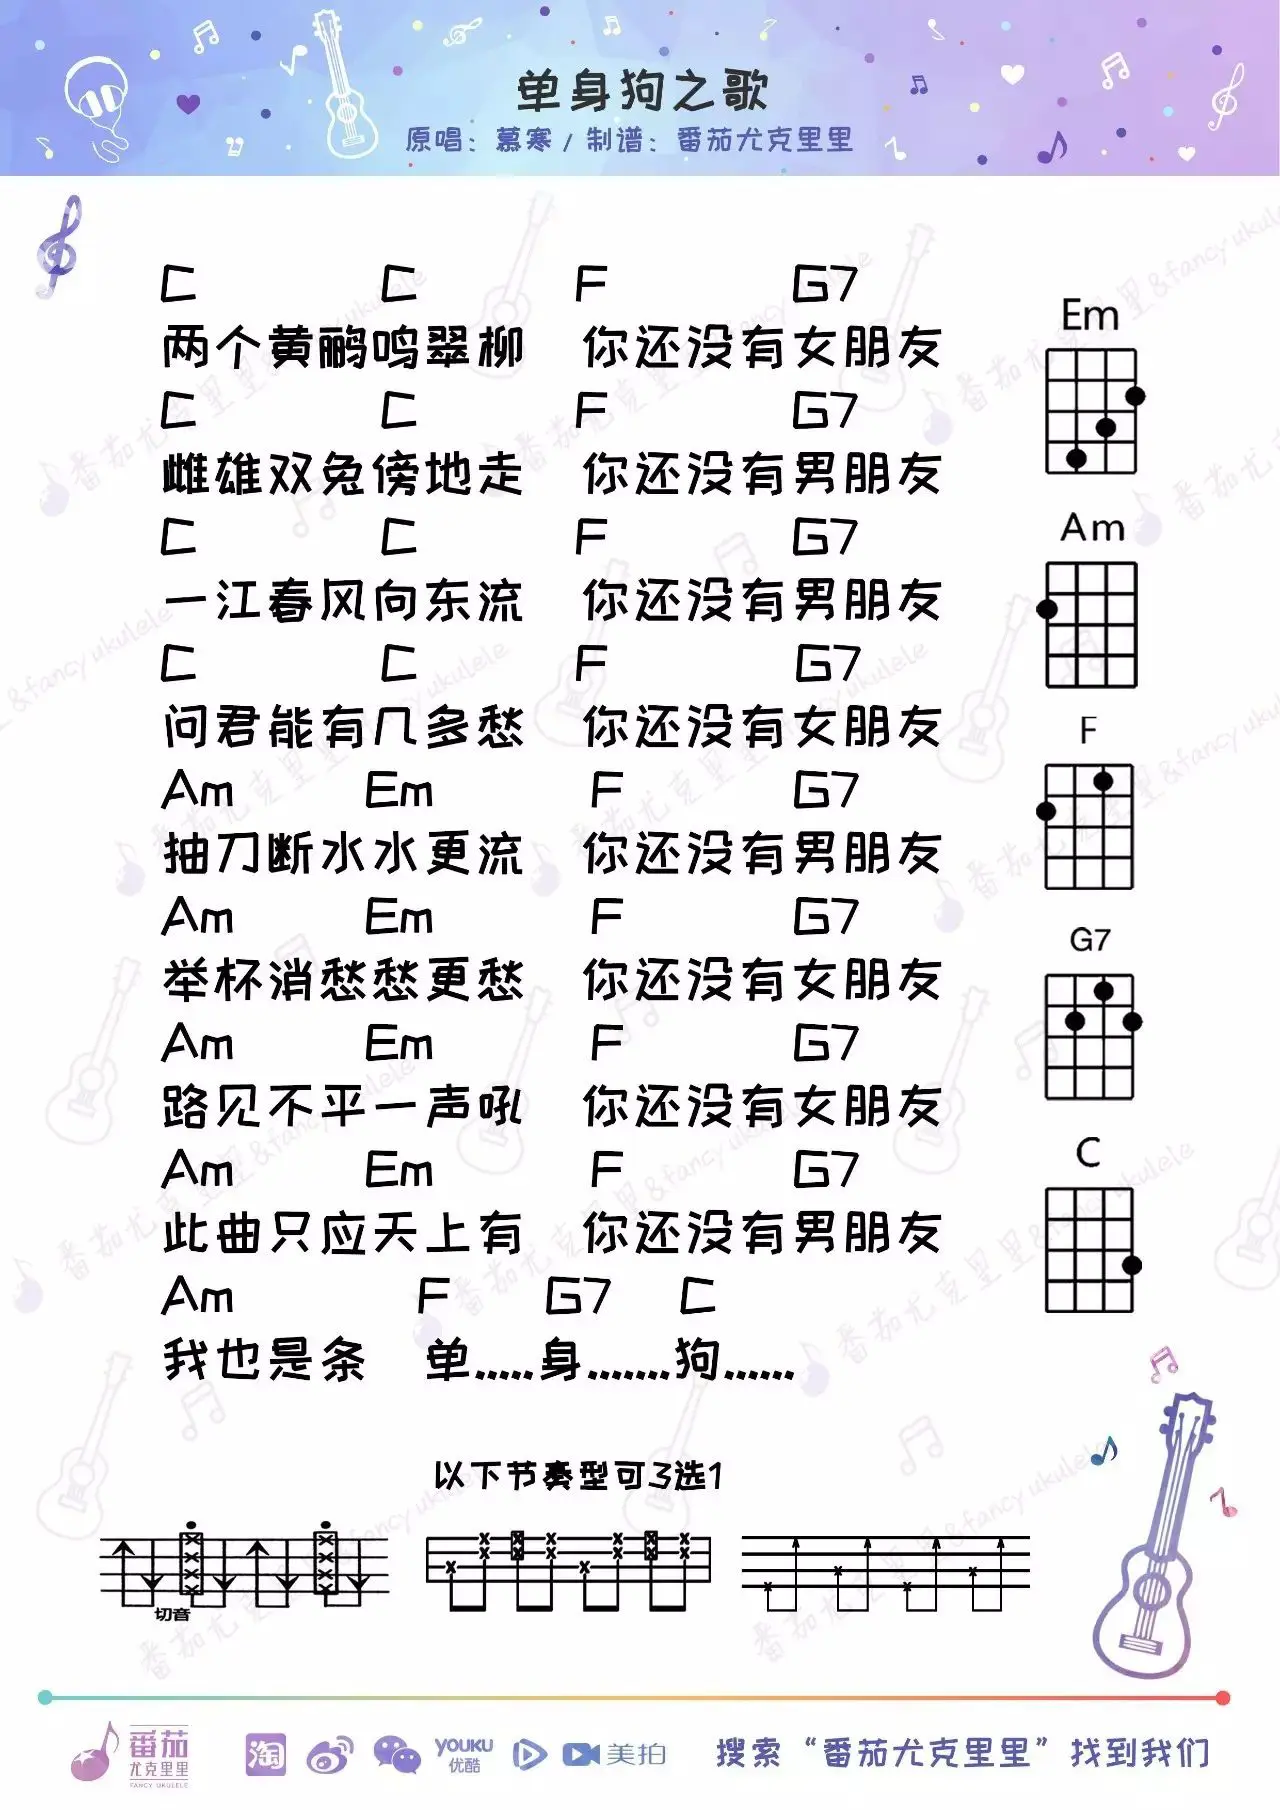 单身狗之歌
原唱：慕寒 / 制谱：番茄尤克里里
C C F G7
两个黄鹂鸣翠柳 你还没有女朋友
C C F G7
雌雄双兔傍地走 你还没有男朋友
C C F G7
一江春风向东流 你还没有男朋友
C C F G7
问君能有几多愁 你还没有女朋友
Am Em F G7
抽刀断水水更流 你还没有男朋友
Am Em F G7
举杯消愁愁更愁 你还没有女朋友
Am Em F G7
路见不平一声吼 你还没有女朋友
Am Em F G7
此曲只应天上有 你还没有男朋友
Am F G7 C
我也是条 单.....身.......狗......
Em
Am
F
G7
C
以下节奏型可3选1
切音
番茄
尤克里里
FANCY UKULELE
淘
YOUKU
优酷
美拍
搜索“番茄尤克里里”找到我们
番茄尤克里里&fancy ukulele